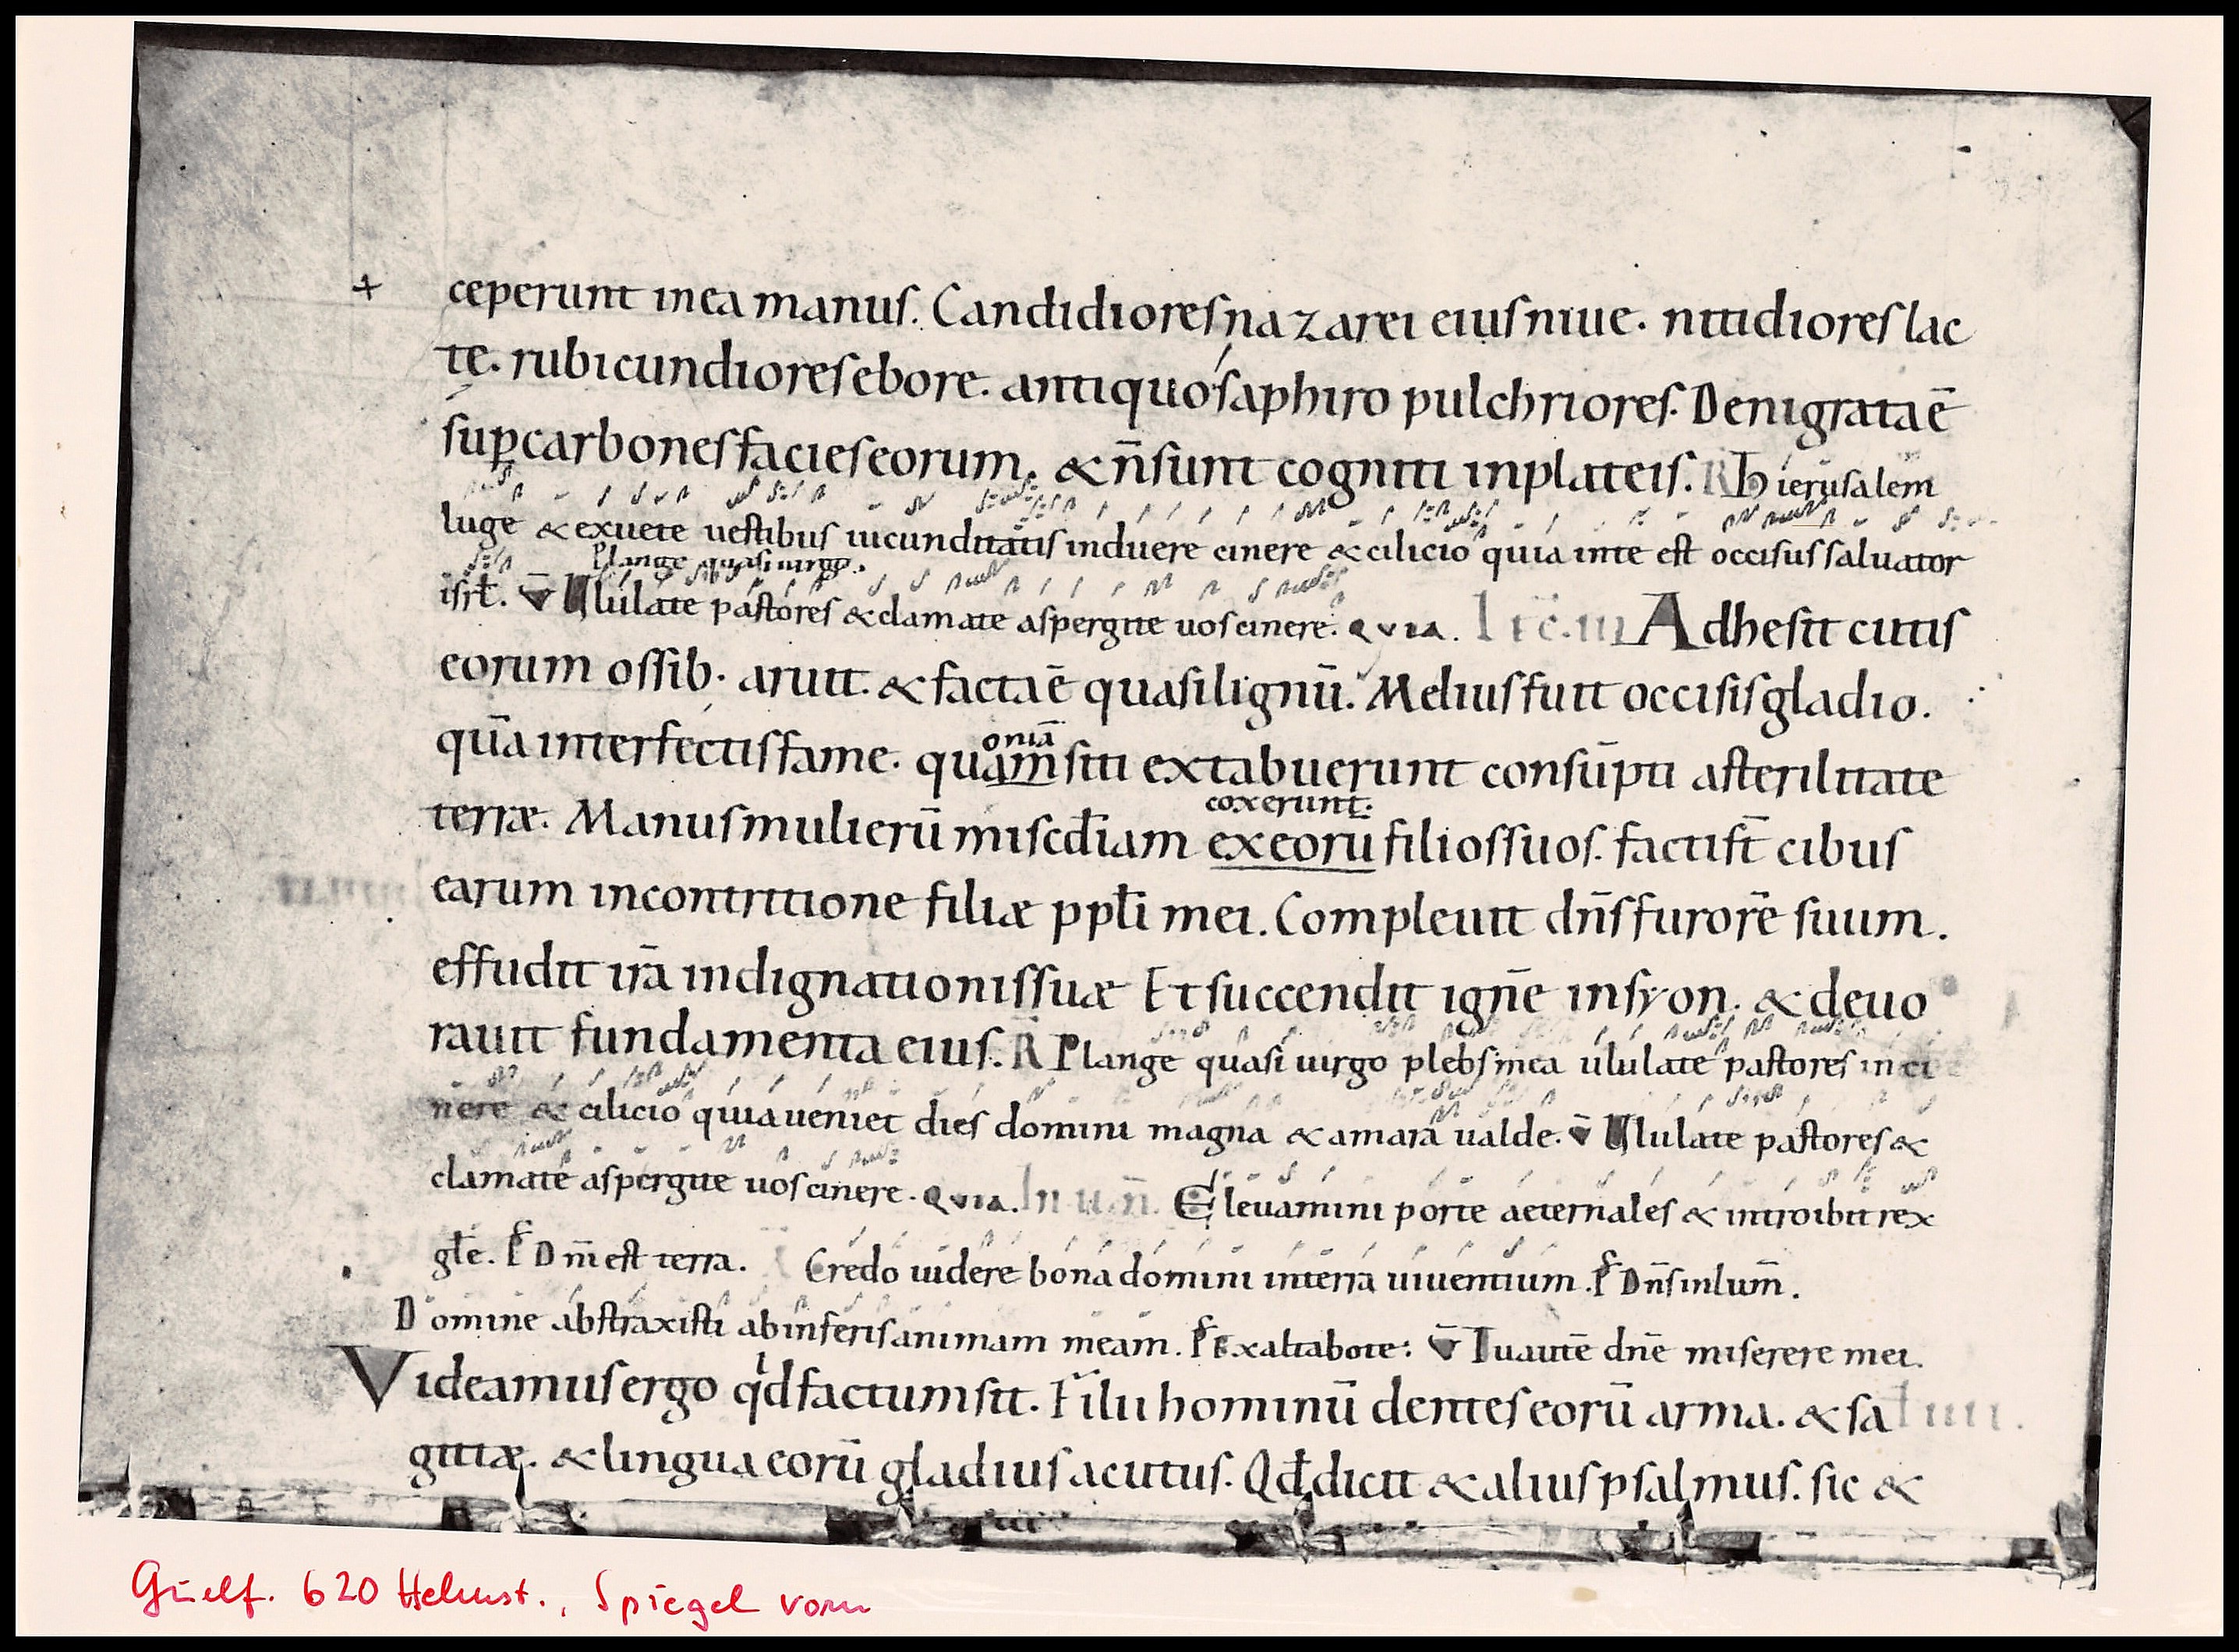 + ceperunt in ea manus. Candidiores nazarei eius niue. nitidiores lac
te. rubicundiores ebore. antiquo saphiro pulchriores. Denigrata ē
sup carbones facies eorum. & n̄ sunt cogniti in plateis. R Hierusalem
luge & exuete uestibus iucunditatis induere cinere & cilicio quia in te est occisus saluator
Plange quasi uirgo.
isrł. V̄ Ululate pastores & clamate aspergite uos cinere. QVIA. Lec. III Adhesit cutis
eorum ossib. aruit. & facta ē quasi lignū. Melius fuit occisis gladio.
oniā
quā interfectis fame. quam siti extabuerunt consūpti a sterilitate
coxerunt.
terræ. Manus mulierū miscđiam exeorū filios suos. facti st̄ cibus
earum in contritione filiæ ppłi mei. Compleuit dn̄s furorē suum.
effudit irā indignationis suæ Et succendit ignē in syon. & deuo
rauit fundamenta eius. R Plange quasi uirgo plebs mea ululate pastores in ci
nere & cilicio quia ueniet dies domini magna & amara ualde. V̄ Ululate pastores &
clamate aspergite uos cinere. QVIA. In II N̄. Eleuamini porte aeternales & introibit rex
głe. Ps Dn̄i est terra. Credo uidere bona domini in terra uiuentium. Ps Dn̄s inlum̄.
Domine abstraxisti ab inferis animam meam. Ps Exaltabo te: V̄ Tu autē dn̄e miserere mei.
Videamus ergo qid factum sit. Filii hominū dentes eorū arma. & sa L IIII.
gittæ. & lingua eorū gladius acutus. Qđ dicit & alius psalmus. sic &
Guelf. 620 Helmst., Spiegel vorn